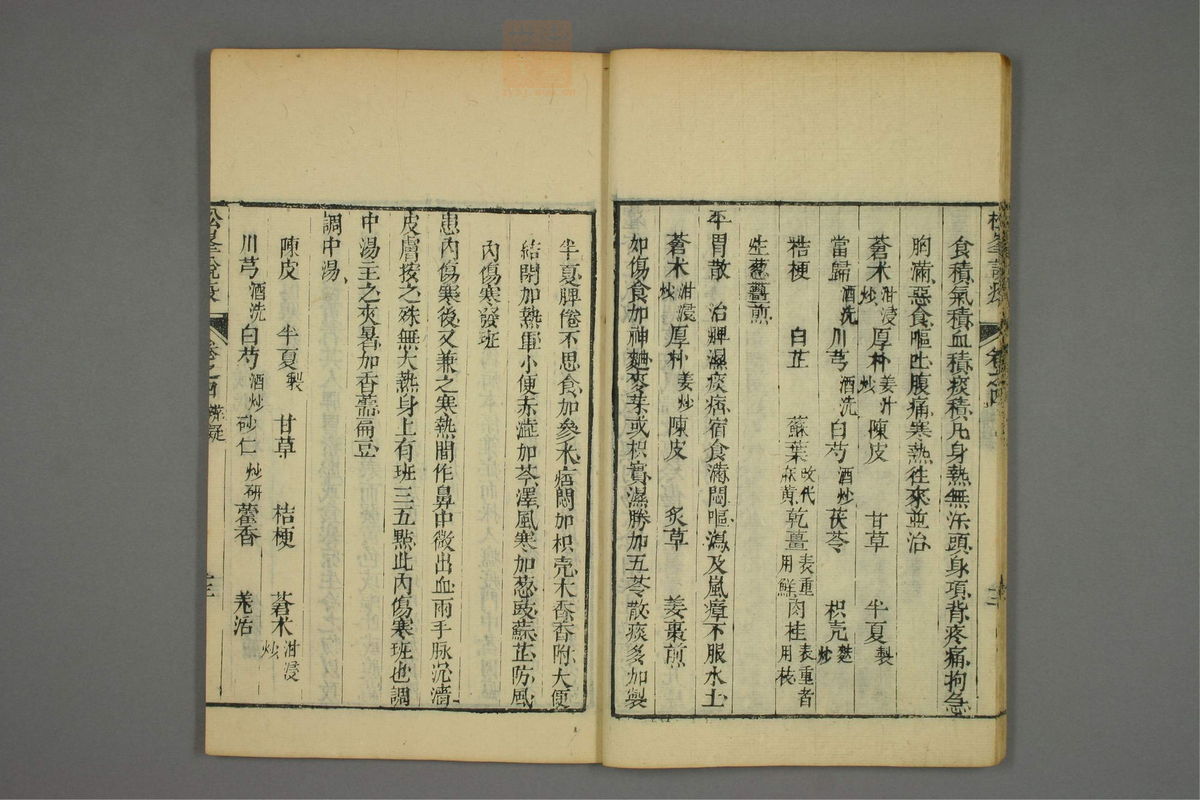 松峯說疫 卷之四 十二
食積氣積血積痰積凡身熱無汗頭身項背疼痛拘急
胸滿惡食嘔吐腹痛寒熱往來並治
蒼术泔浸炒 厚朴姜汁炒 陳皮 甘草 半夏製
當歸酒洗 川芎酒洗 白芍酒炒 茯苓 枳壳麩炒
桔梗 白芷 蘇葉改代麻黄 乾薑表重用鮮 肉桂表重者用枝
生葱薑煎
平胃散 治脾濕痰痞宿食滿悶嘔瀉及嵐瘴不服水土
蒼术泔浸炒 厚朴姜炒 陳皮 炙草 姜棗煎
如傷食加神麯麥芽或枳實濕勝加五苓散痰多加製
半夏脾倦不思食加參术痞悶加枳壳木香香附大便
結閉加熱軍小便赤澀加苓澤風寒加葱豉蘇芷防風
內傷寒發班
患內傷寒後又兼之寒熱間作鼻中微出血兩手脉沉濇
皮膚按之殊無大熱身上有班三五點此內傷寒班也調
中湯主之夾暑加香薷扁豆
調中湯
陳皮 半夏製 甘草 桔梗 蒼术泔浸炒
川芎酒洗 白芍酒炒 砂仁炒研 藿香 羗活
松峯說疫 卷之四 辨疑 十三